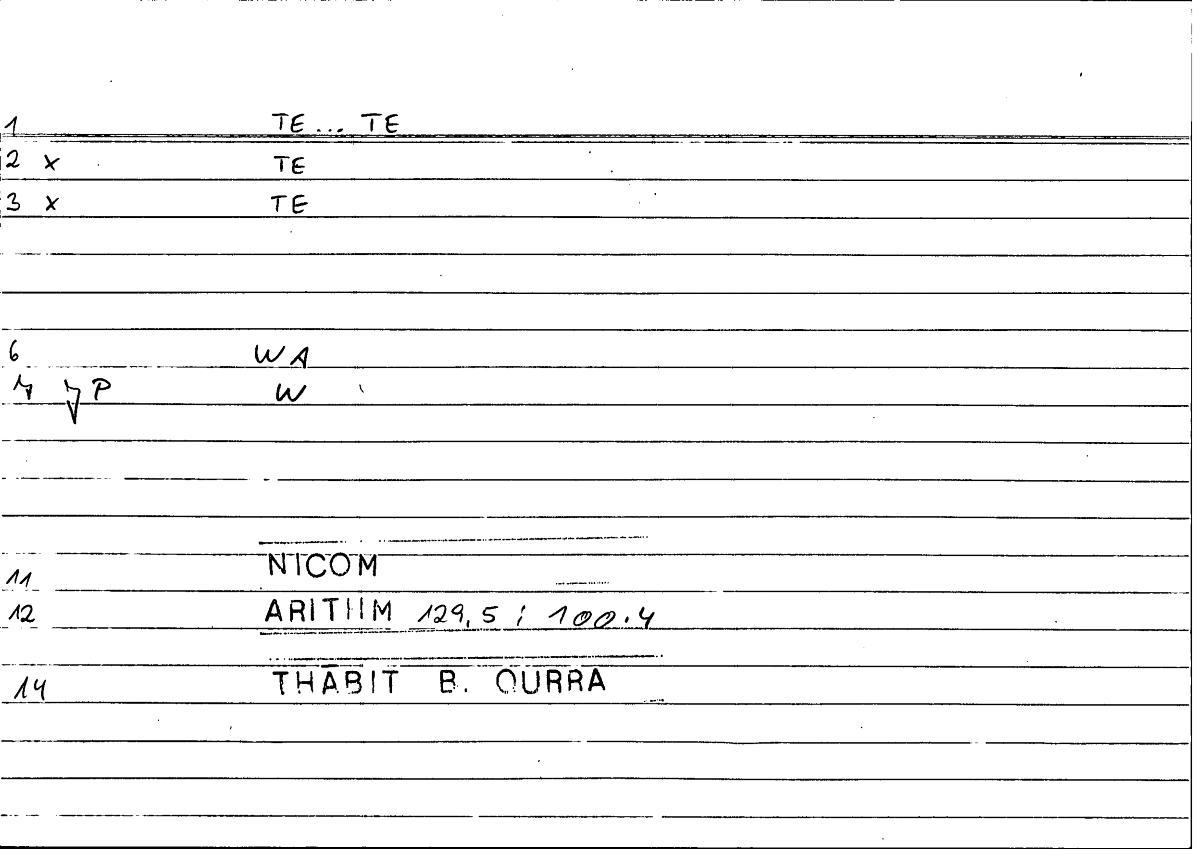 1 TE ... TE
2 x TE
3 x TE
6 WA
P W
11 NICOM
12 ARITHM 129,5 ; 100.4
14 THĀBIT B. QURRA